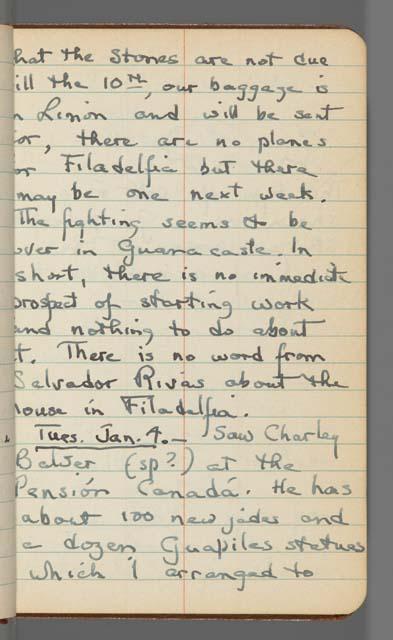 hat the Stones are not due
ill the 10th, our baggage is
n Limon and will be sent
or, there are no planes
or Filadelfia but there
may be one next week.
The fighting seems to be
over in Guanacaste. In
short, there is no immediate
prospect of starting work
and nothing to do about
t. There is no word from
Salvador Rivas about the
louse in Filadelfia.
Tues. Jan. 4.— Saw Charley
Balser (sp?) at the
Pensión Canadá. He has
about 100 new jades and
a dozen Guapiles statues
which I arranged to